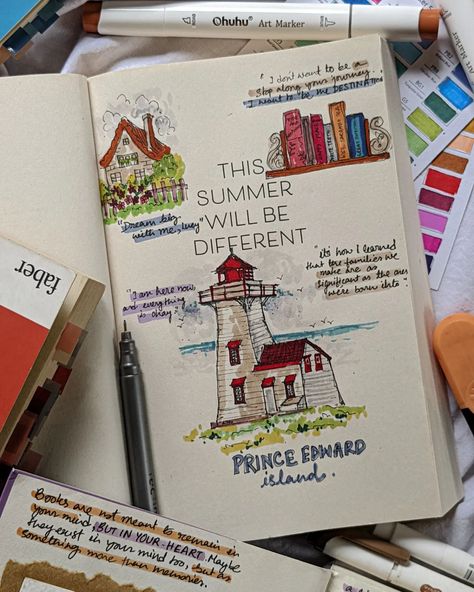 Ohuhu Art Marker
"I don't want to be a
stop along your journey.
I want to be the DESTINATION
THIS
SUMMER
WILL BE
DIFFERENT
"Dream big
with me, Lucy"
"I am here now
and everything
is okay"
"it's how I learned
that the families we
make are as
significant as the ones
we're born into."
PRINCE EDWARD
island.
faber
Books are not meant to remain in
your mind, BUT IN YOUR HEART. Maybe
they exist in your mind too, but as
something more than memories.